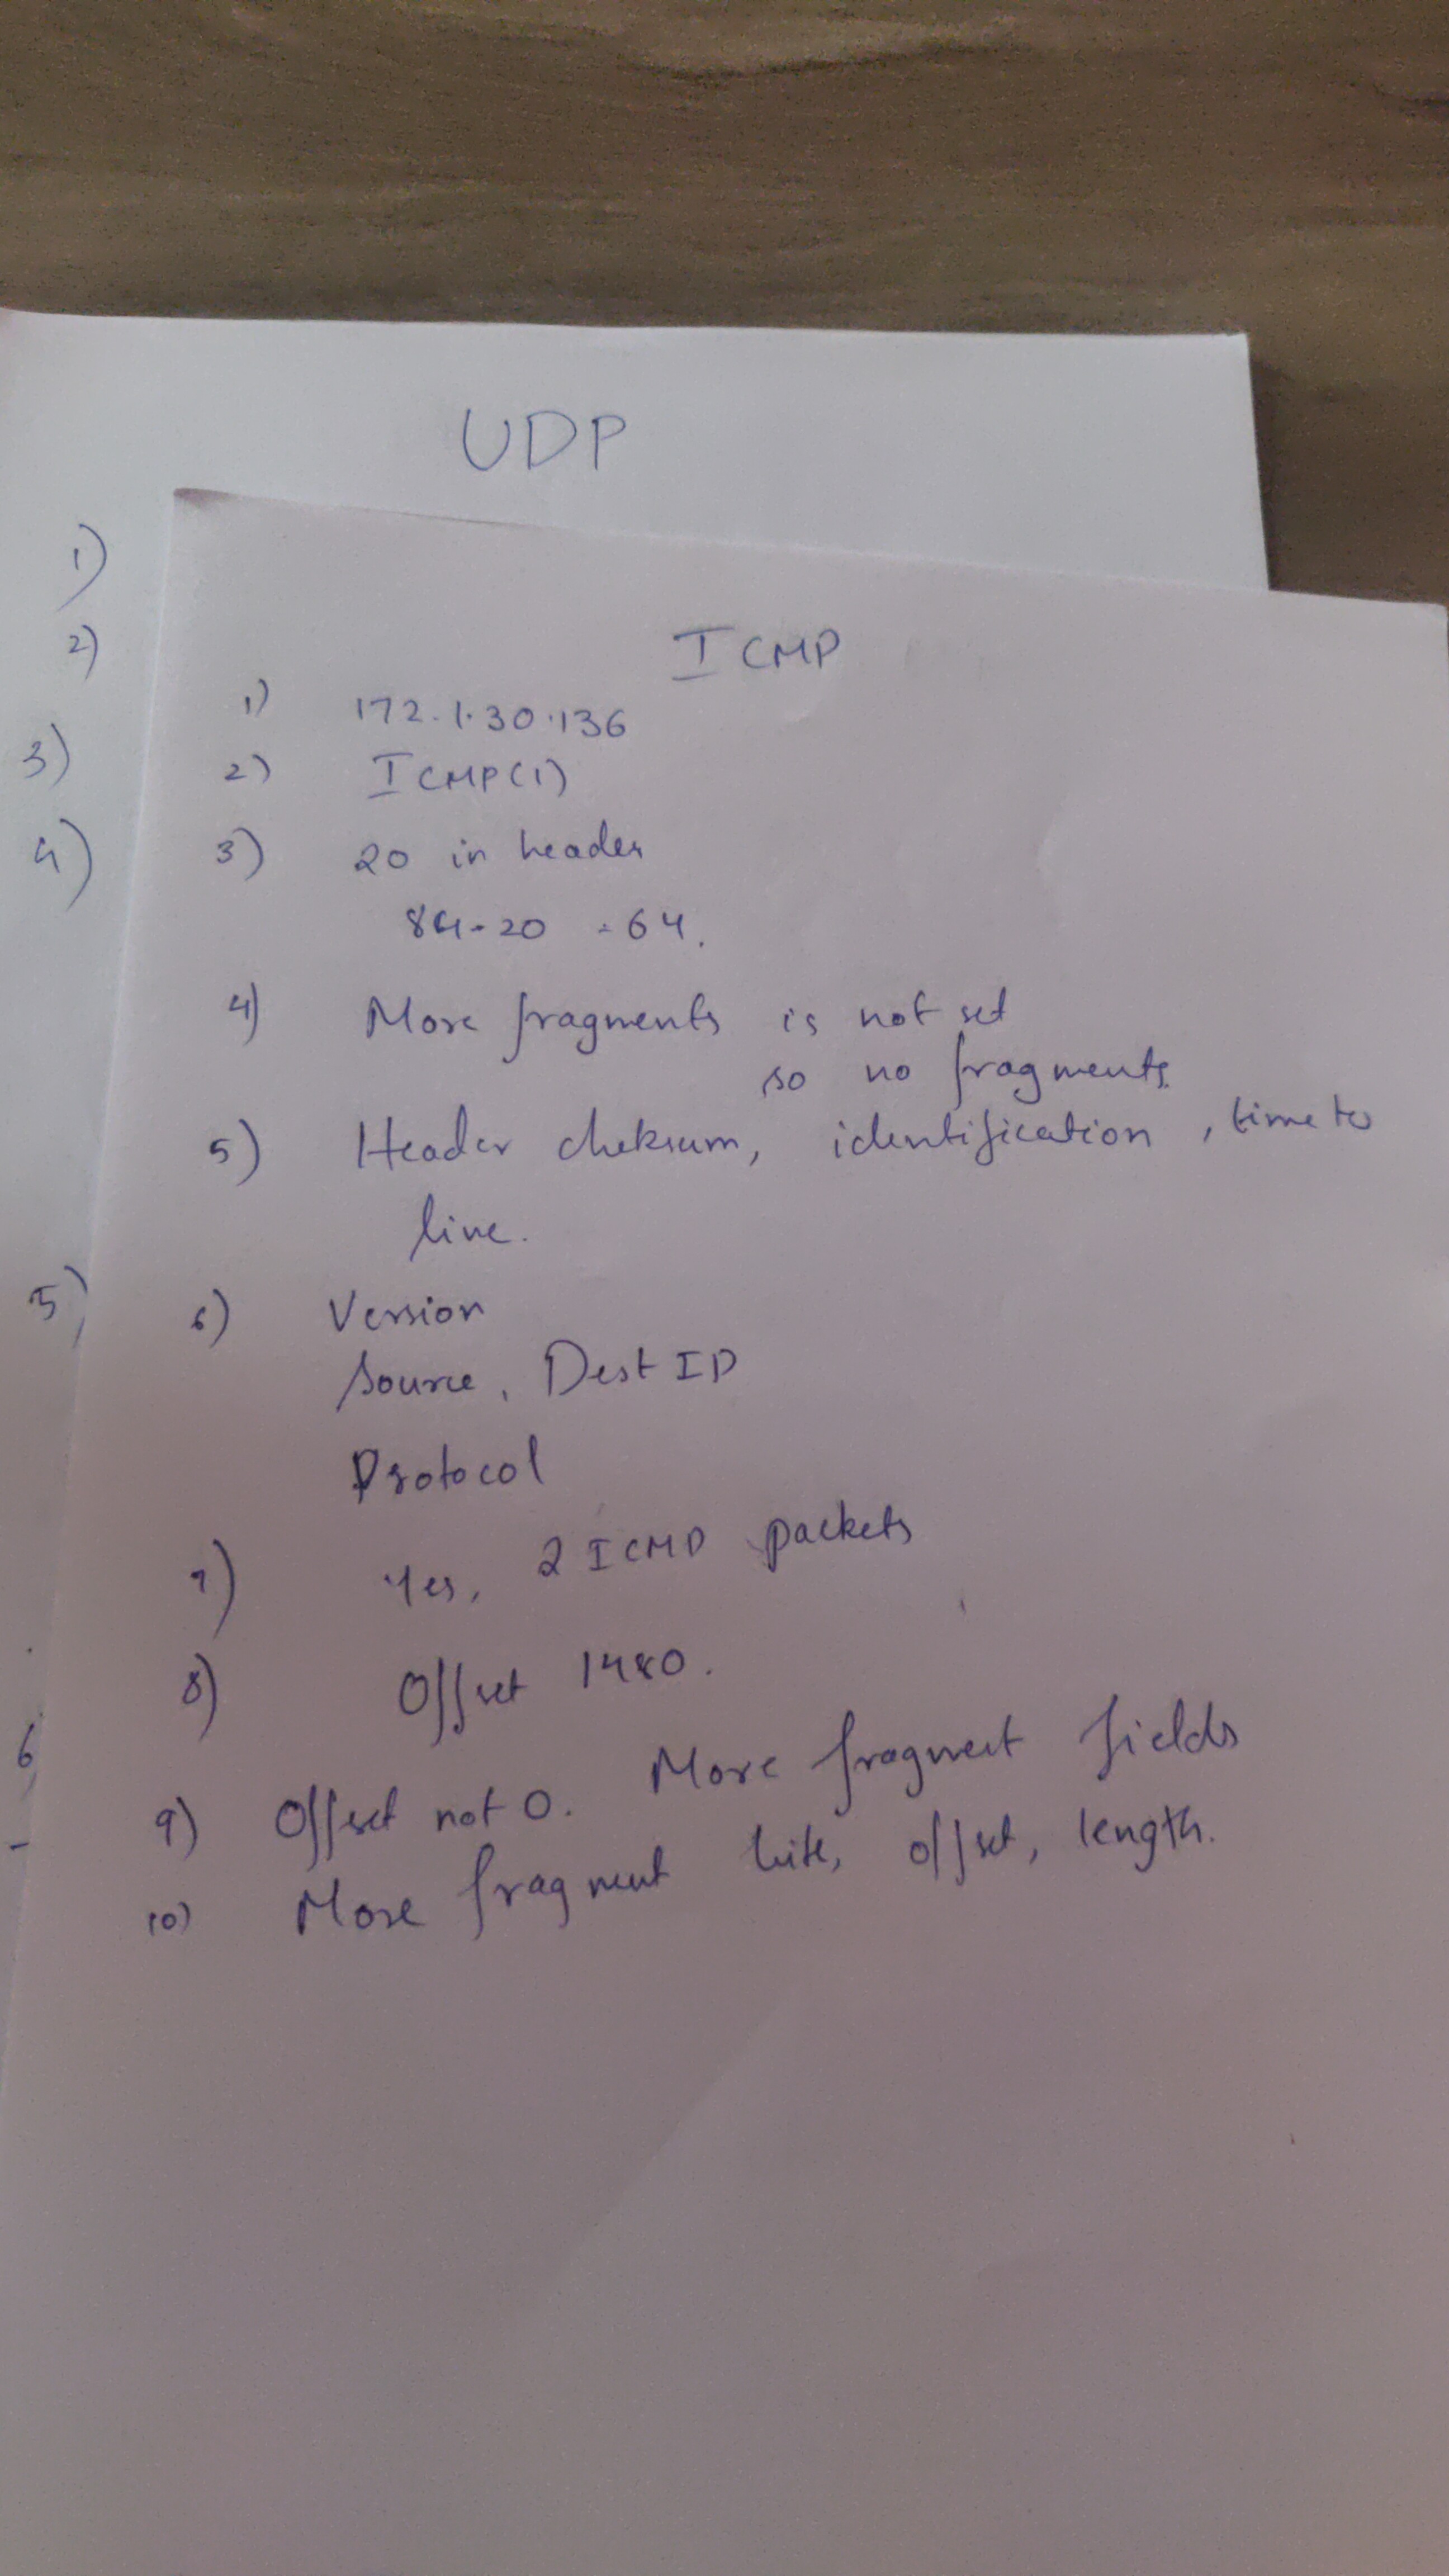 UDP
1)
2)
3)
4)
5)
6
ICMP
1) 172.1.30.136
2) ICMP(1)
3) 20 in header
84-20 = 64.
4) More fragments is not set
so no fragments
5) Header cheksum, identification, time to
live.
6) Version
Source, Dest IP
Protocol
7) Yes, 2 ICMP packets
8) Offset 1480.
9) Offset not 0. More fragment fields
10) More fragment bits, offset, length.